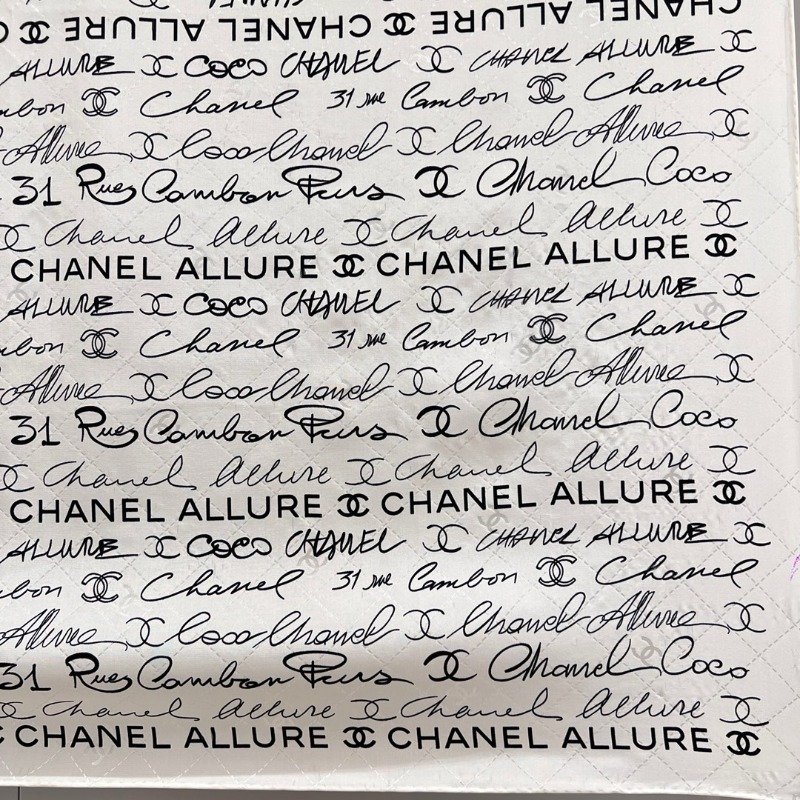 CHANEL
CHANEL ALLURE CHANEL ALLURE
ALLURE COCO CHANEL CHANEL ALLURE
mbon Chanel 31 rue Cambon Chanel
Allure Coco Chanel Chanel Allure
31 Rue Cambon Paris Chanel Coco
Chanel Allure Chanel Allure
CHANEL ALLURE CHANEL ALLURE
ALLURE COCO CHANEL CHANEL ALLURE
mbon Chanel 31 rue Cambon Chanel
Allure Coco Chanel Chanel Allure
31 Rue Cambon Paris Chanel Coco
Chanel Allure Chanel Allure
CHANEL ALLURE CHANEL ALLURE
ALLURE COCO CHANEL CHANEL ALLURE
bon Chanel 31 rue Cambon Chanel
Allure Coco Chanel Chanel Allure
31 Rue Cambon Paris Chanel Coco
Chanel Allure Chanel Allure
CHANEL ALLURE CHANEL ALLURE